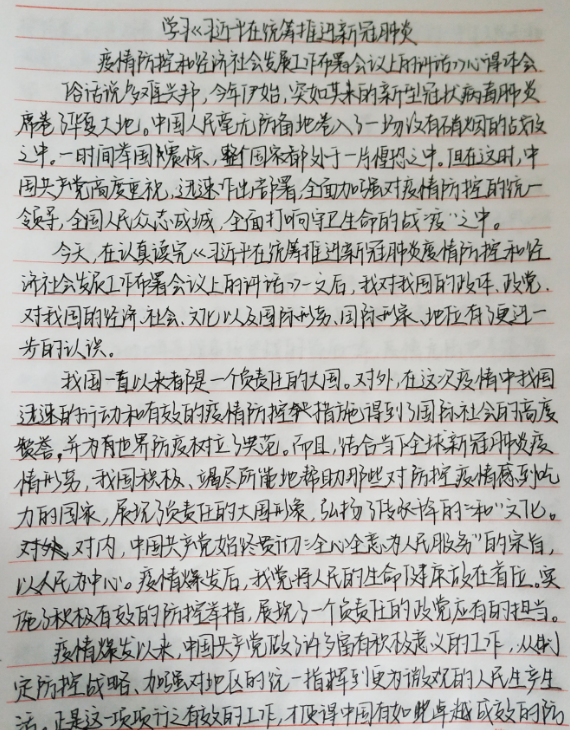 学习《习近平在统筹推进新冠肺炎
疫情防控和经济社会发展工作部署会议上的讲话》心得体会
俗话说多难兴邦，今年伊始，突如其来的新型冠状病毒肺炎
席卷了华夏大地。中国人民毫无防备地卷入了一场没有硝烟的战役
之中。一时间举国震惊、整个国家都处于一片惶恐之中。但在这时，中
国共产党高度重视，迅速作出部署，全面加强对疫情防控的统一
领导，全国人民众志成城，全面打响守卫生命的战“疫”之中。
今天，在认真读完《习近平在统筹推进新冠肺炎疫情防控和经
济社会发展工作部署会议上的讲话》一文后，我对我国的政体、政党、
对我国的经济、社会、文化以及国际形势、国际形象、地位有了更进一
步的认识。
我国一直以来都是一个负责任的大国。对外，在这次疫情中我国
迅速的行动和有效的疫情防控措施得到了国际社会的高度
赞誉，并为世界防疫树立了典范。而且，结合当下全球新冠肺炎疫
情形势，我国积极、竭尽所能地帮助那些对防控疫情感到吃
力的国家，展现了负责任的大国形象，弘扬了传统中的“和”文化。
对内，中国共产党始终贯彻“全心全意为人民服务”的宗旨，
以人民为中心。疫情爆发后，我党将人民的生命健康放在首位。实
施了积极有效的防控举措，展现了一个负责任的政党应有的担当。
疫情爆发以来，中国共产党做了许多富有积极意义的工作，从制
定防控战略、加强对地区的统一指挥到更为微观的人民生产生
活。正是这一项项行之有效的工作，才使得中国有如此卓越成效的防